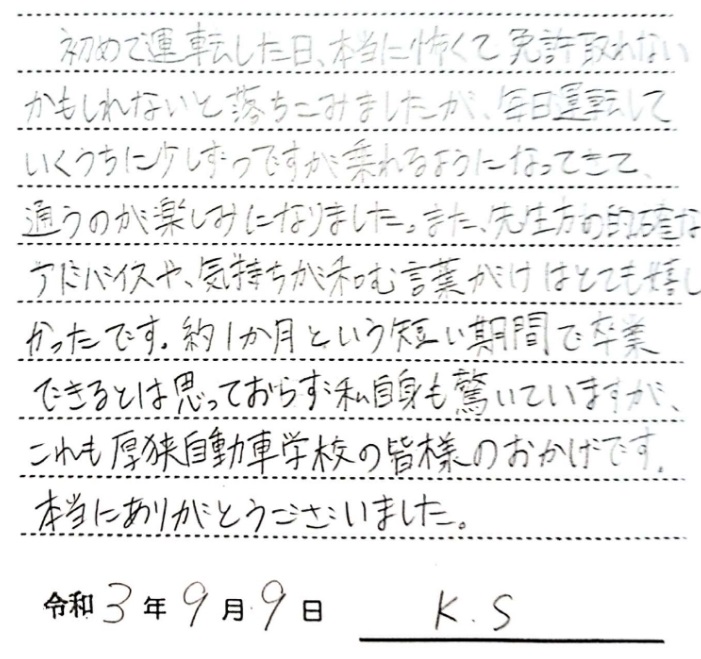 初めて運転した日、本当に怖くて免許取れない
かもしれないと落ちこみましたが、毎日運転して
いくうちに少しずつですが乗れるようになってきて、
通うのが楽しみになりました。また、先生方の的確な
アドバイスや、気持ちが和む言葉がけはとても嬉し
かったです。約1か月という短い期間で卒業
できるとは思っておらず私自身も驚いていますが、
これも厚狭自動車学校の皆様のおかげです。
本当にありがとうございました。
令和3年9月9日 K.S